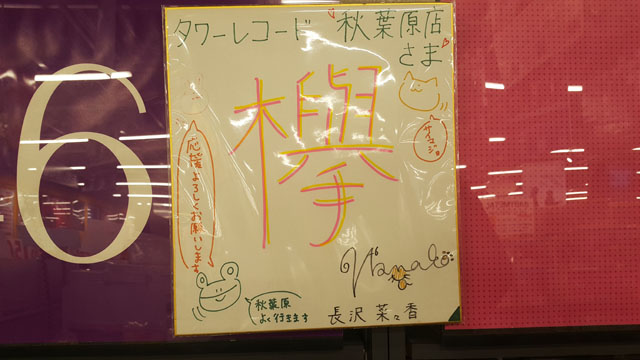 タワーレコード 秋葉原店
さま
欅
サイマジョ。
応援よろしくお願いします
秋葉原
よく行きます
Nanako
長沢菜々香
6